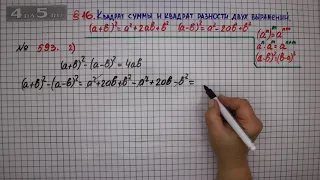 4 5
§ 16. Квадрат суммы и квадрат разности двух выражений
(a+b)² = a²+2ab+b²   (a-b)² = a²-2ab+b²
№ 593. 2)
(aᵐ)ⁿ = aᵐⁿ
aⁿ·aᵐ = aⁿ⁺ᵐ
(a-b)² = (b-a)²
(a+b)² - (a-b)² = 4ab
(a+b)² - (a-b)² = a²+2ab+b² - a²+2ab-b² =